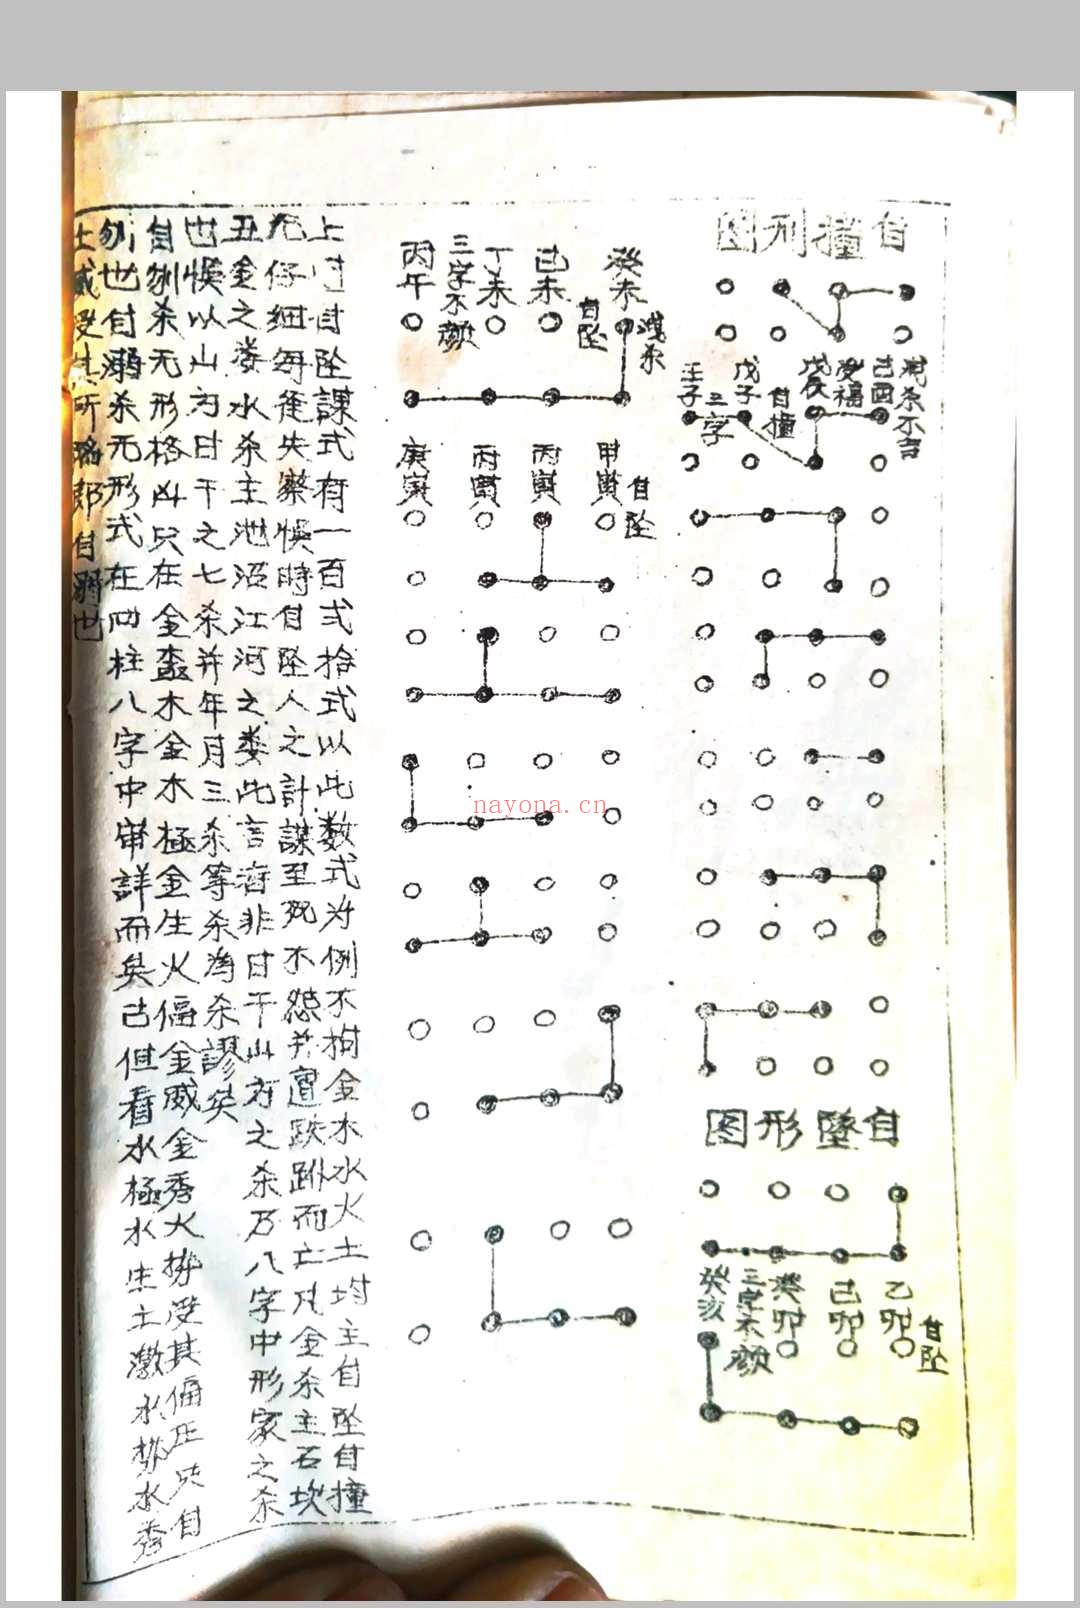 自撞刑图
己酉
受福
戊辰
自撞
戊子
三字
壬子
自墜形图
自坠
乙卯
己卯
癸卯
三字不顏
癸亥
癸未
自坠
己未
丁未
三字不顏
丙午
自坠
甲寅
丙寅
丙寅
庚寅
自坠謀式有一百弍拾式以此数式为例不拘金木水火土均主自坠自撞
仔细每徃失察悮時自坠人之計謀至死不怨并遭跌跗而亡凡金杀主石坎
丑金之娄水杀主池沼江河之娄此言者非日干山方之杀乃八字中形家之杀
也悮以山方日干之七杀并年月三杀等杀為杀謬矣
自刎杀无形格凶只在金盔木金木極金生火偪金威金秀火势受其偪压只自
刎也自溺杀无形式在四柱八字中审詳而矣己但看水極水生土激水势水秀
土威受其所 即自溺也
nayona.cn